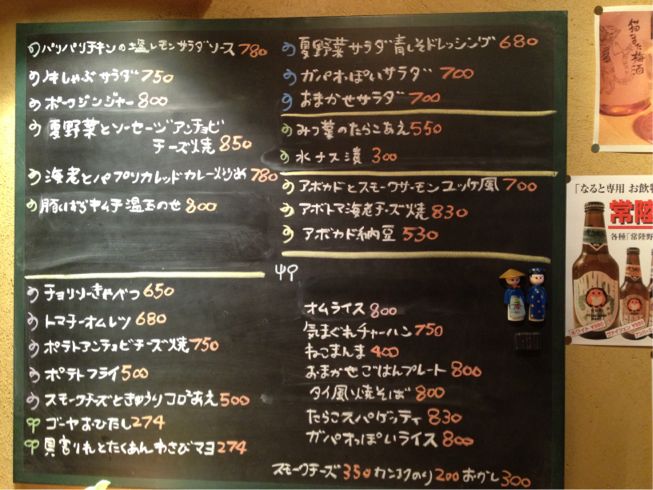 パリパリチキンの塩レモンサラダソース 780
牛しゃぶサラダ 750
ポークジンジャー 800
夏野菜とソーセージアンチョビ
チーズ焼 850
海老とパプリカレッドカレー炒め 780
豚はらキムチ温玉のせ 800
夏野菜サラダ青しそドレッシング 680
ガパオっぽいサラダ 700
おまかせサラダ 700
みつ葉のたらこあえ 550
水ナス漬 300
アボカドとスモークサーモンユッケ風 700
アボトマ海老チーズ焼 830
アボカド納豆 530
チョリソーきゃべつ 650
トマチーオムレツ 680
ポテトアンチョビチーズ焼 750
ポテトフライ 500
スモークチーズときゅうりコロコロあえ 500
ゴーヤおひたし 274
貝割れとたくあんわさびマヨ 274
オムライス 800
気まぐれチャーハン 750
ねこまんま 400
おまかせごはんプレート 800
タイ風焼そば 800
たらこスパゲッティ 830
ガパオっぽいライス 800
スモークチーズ 350 カンコクのり 200 おかし 300
梅酒
「なると専用 お飲物
常陸
各種「常陸野